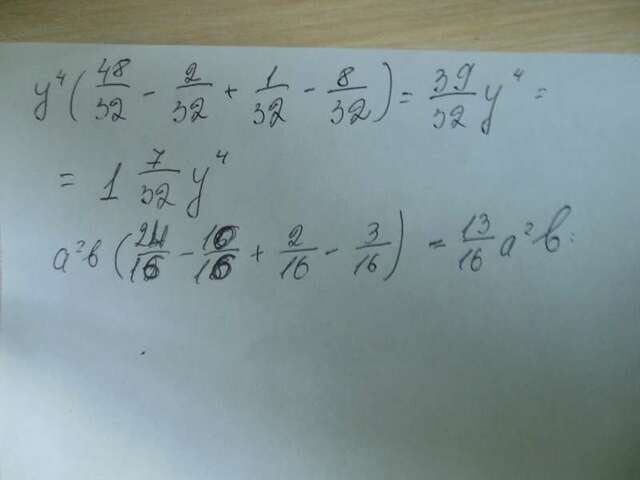 y⁴(48/32 - 2/32 + 1/32 - 8/32) = 39/32 y⁴ =
= 1 7/32 y⁴
a²b(24/16 - 10/16 + 2/16 - 3/16) = 13/16 a²b.